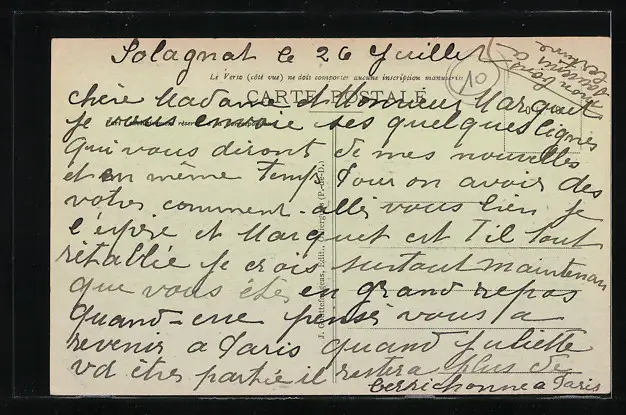 Solagnat le 26 Juillet
Le Verso (côté vue) ne doit comporter aucune inscription manuscrite
10
CARTE POSTALE
chère Madame et Monsieur Marquet
je vous envoie ses quelques lignes
qui vous diront de mes nouvelles
et en même temps pour en avoir des
votres comment-allez vous bien je
l'espère et Marquet est t'il tout
rétablie je crois surtout maintenan
que vous êtes en grand repos
quand-ene pensez vous a
revenir a Paris quand Juliette
vd êtes partie il restera plus de
berrichonne a Paris